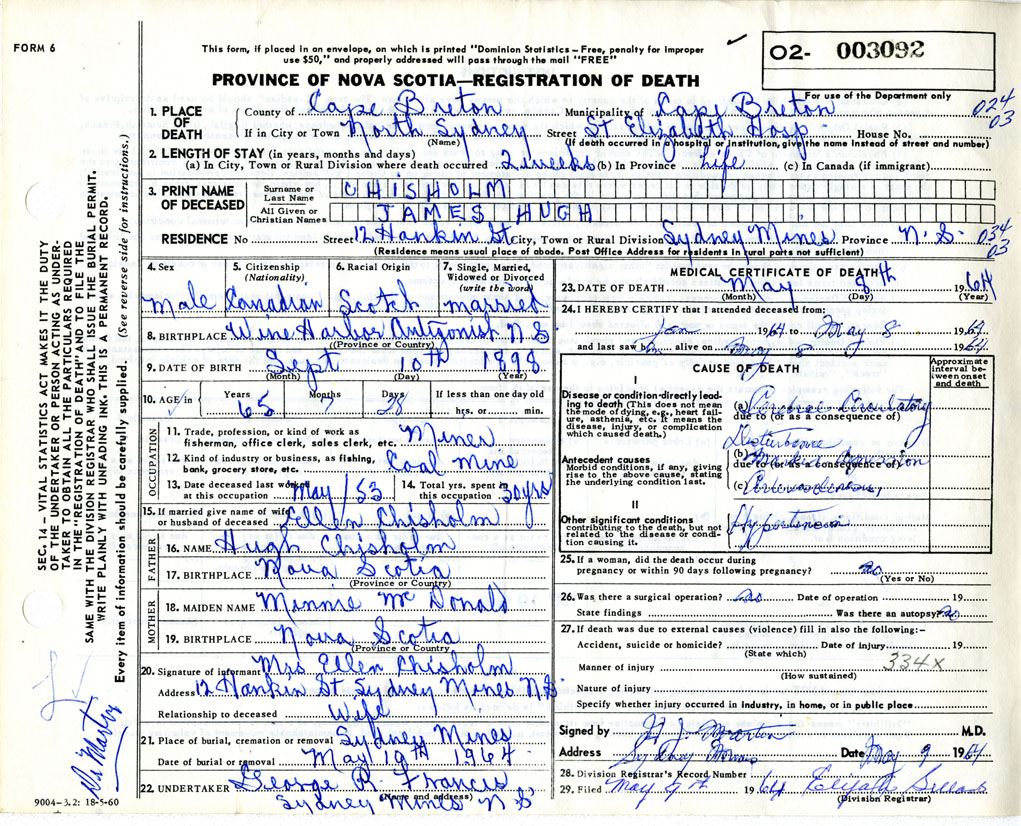 FORM 6
This form, if placed in an envelope, on which is printed "Dominion Statistics – Free, penalty for improper
use $50," and properly addressed will pass through the mail "FREE"
O2- 003092
PROVINCE OF NOVA SCOTIA—REGISTRATION OF DEATH
For use of the Department only
1. PLACE OF DEATH County of Cape Breton Municipality of Cape Breton 024 03
If in City or Town North Sydney Street St Elizabeth Hosp. House No.
(Name) (If death occurred in a hospital or institution, give the name instead of street and number)
2. LENGTH OF STAY (in years, months and days)
(a) In City, Town or Rural Division where death occurred 2 weeks (b) In Province Life (c) In Canada (if immigrant)
3. PRINT NAME OF DECEASED Surname or Last Name CHISHOLM
All Given or Christian Names JAMES HUGH
RESIDENCE No Street 12 Hankin St City, Town or Rural Division Sydney Mines Province N. S. 034 03
(Residence means usual place of abode. Post Office Address for residents in rural parts not sufficient)
4. Sex 5. Citizenship (Nationality) 6. Racial Origin 7. Single, Married, Widowed or Divorced (write the word)
Male Canadian Scotch married
8. BIRTHPLACE Wine Harbor Antigonish N S
(Province or Country)
9. DATE OF BIRTH Sept 10th 1898
(Month) (Day) (Year)
10. AGE in Years Months Days If less than one day old
65 7 28 hrs. or min.
OCCUPATION
11. Trade, profession, or kind of work as
fisherman, office clerk, sales clerk, etc. Mines
12. Kind of industry or business, as fishing,
bank, grocery store, etc. Coal mine
13. Date deceased last worked at this occupation May/53 14. Total yrs. spent in this occupation 30 yrs
15. If married give name of wife
or husband of deceased Ellen Chisholm
FATHER
16. NAME Hugh Chisholm
17. BIRTHPLACE Nova Scotia
(Province or Country)
MOTHER
18. MAIDEN NAME Minnie McDonald
19. BIRTHPLACE Nova Scotia
(Province or Country)
20. Signature of informant Mrs Ellen Chisholm
Address 12 Hankin St Sydney Mines NS
Relationship to deceased Wife
21. Place of burial, cremation or removal Sydney Mines
Date of burial or removal May 10th 1964
22. UNDERTAKER George R. Francis
(Name and address)
Sydney Mines N S
9004–3.2: 18-5-60
MEDICAL CERTIFICATE OF DEATH
23. DATE OF DEATH May 8th 1964
(Month) (Day) (Year)
24. I HEREBY CERTIFY that I attended deceased from:
Jan 1964 to May 8 1964
and last saw h alive on May 8 1964
CAUSE OF DEATH
Approximate interval between onset and death
I
Disease or condition directly leading to death (This does not mean the mode of dying, e.g., heart failure, asthenia, etc. It means the disease, injury, or complication which caused death.)
(a) Cerebral Circulatory
due to (or as a consequence of)
Disturbance
Antecedent causes
Morbid conditions, if any, giving rise to the above cause, stating the underlying condition last.
(b)
due to (or as a consequence of)
(c) Arteriosclerosis
II
Other significant conditions contributing to the death, but not related to the disease or condition causing it.
Hypertension
25. If a woman, did the death occur during
pregnancy or within 90 days following pregnancy? no
(Yes or No)
26. Was there a surgical operation? no Date of operation 19
State findings Was there an autopsy? no
27. If death was due to external causes (violence) fill in also the following:–
Accident, suicide or homicide? Date of injury 19
(State which)
Manner of injury 334X
(How sustained)
Nature of injury
Specify whether injury occurred in industry, in home, or in public place
Signed by H J Martin M.D.
Address Sydney Mines Date May 9 1964
28. Division Registrar's Record Number
29. Filed May 9th 1964
(Division Registrar)
SEC. 14– VITAL STATISTICS ACT MAKES IT THE DUTY
OF THE UNDERTAKER OR PERSON ACTING AS UNDER-
TAKER TO OBTAIN ALL THE PARTICULARS REQUIRED
IN THE "REGISTRATION OF DEATH" AND TO FILE THE
SAME WITH THE DIVISION REGISTRAR WHO SHALL ISSUE THE BURIAL PERMIT.
WRITE PLAINLY WITH UNFADING INK. THIS IS A PERMANENT RECORD.
Every item of information should be carefully supplied. (See reverse side for instructions.)
Dr Martin